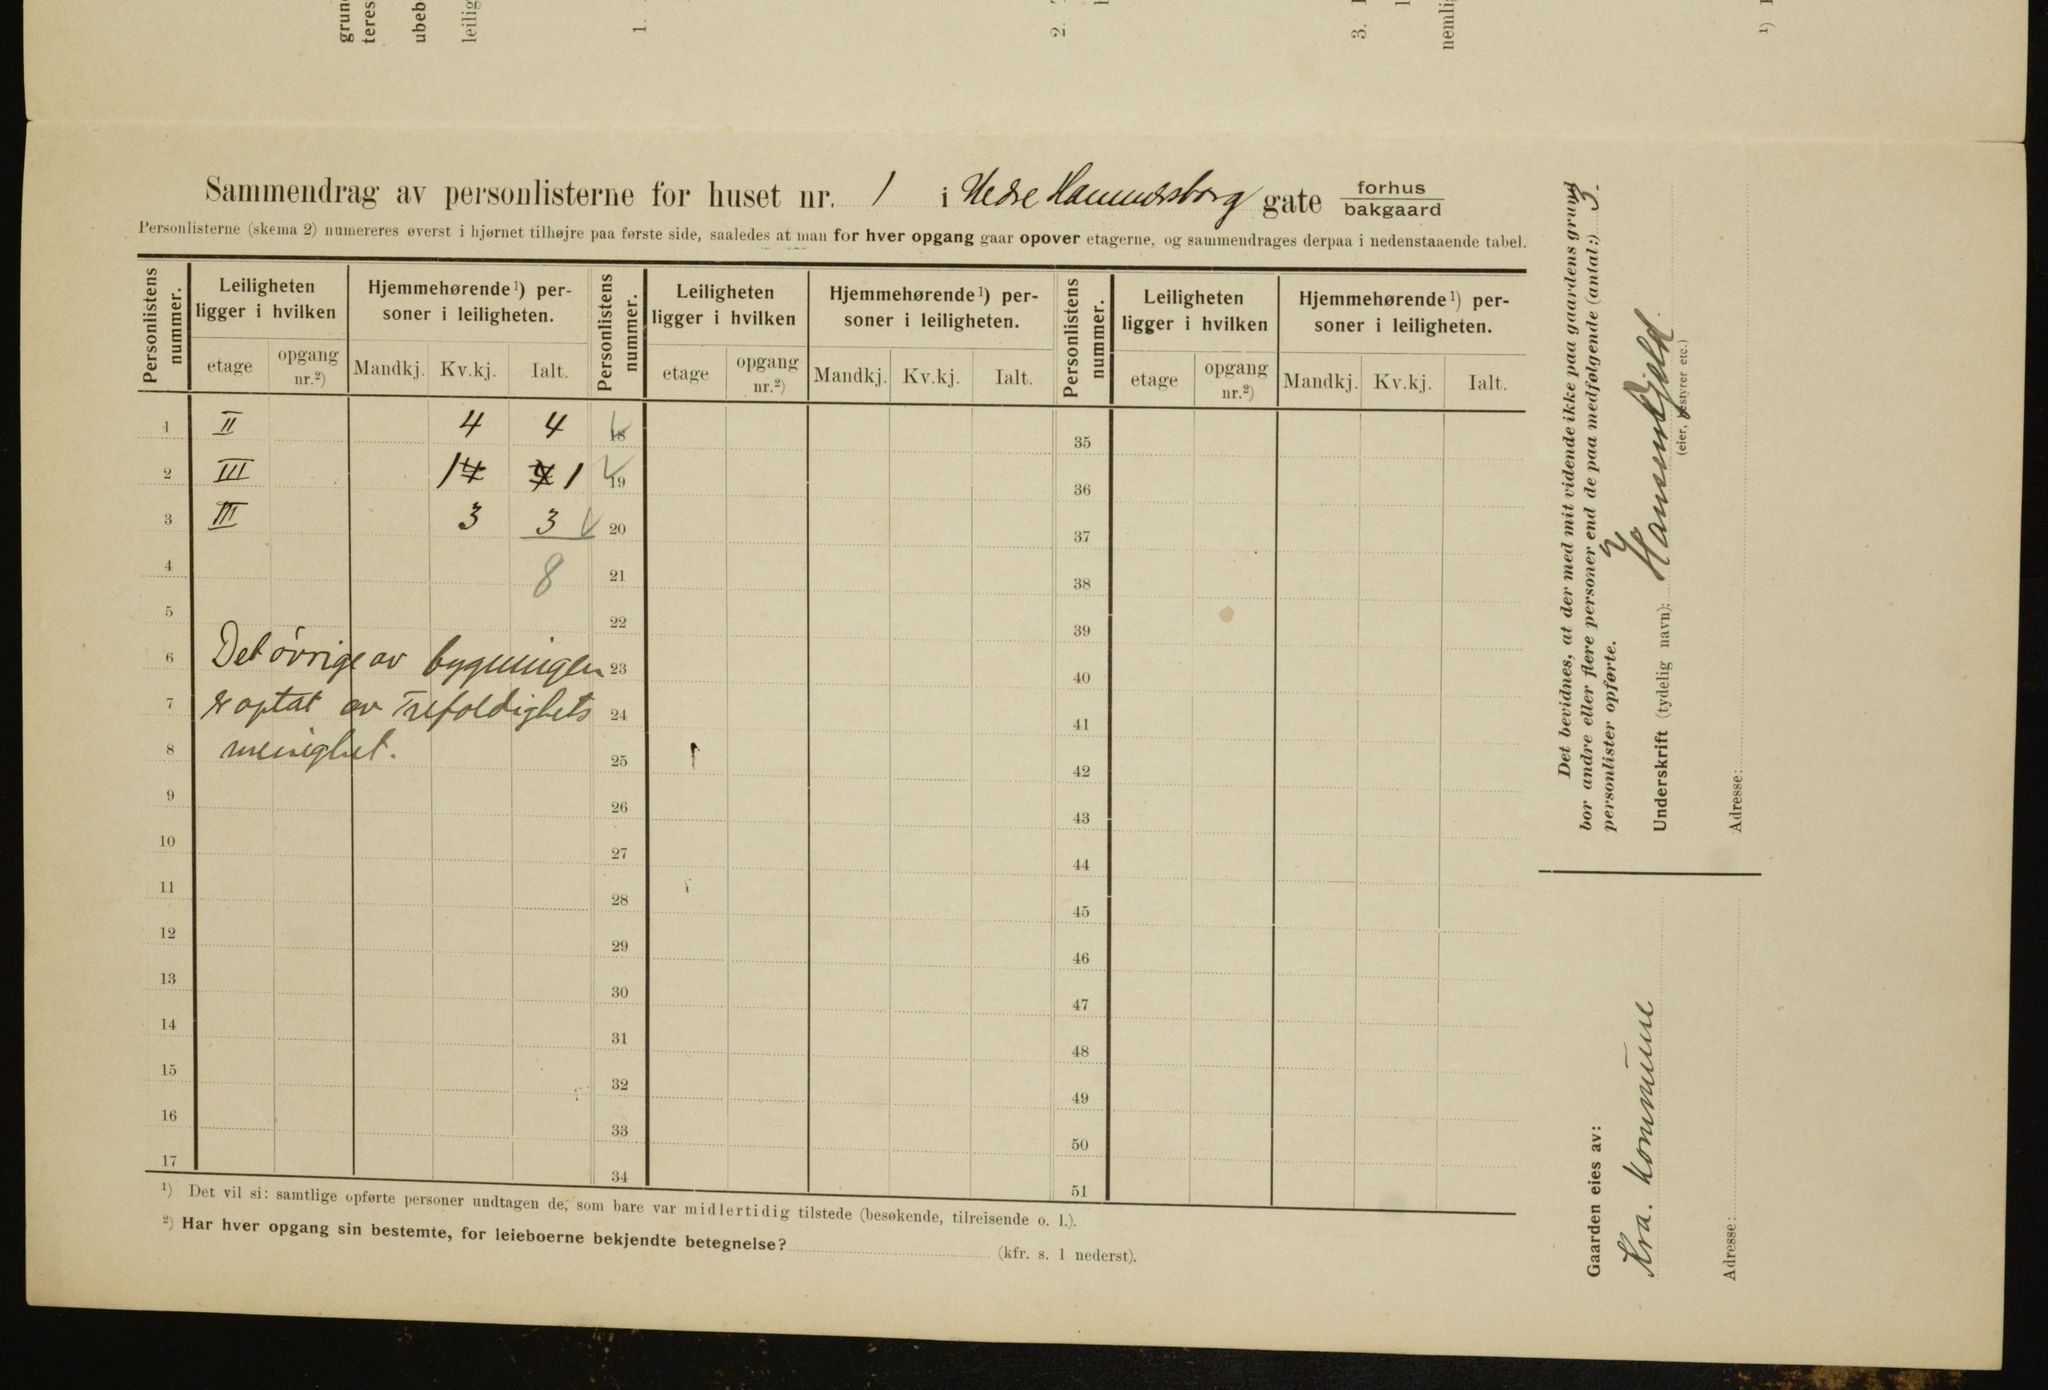 grun
teres
ubeb
leilig
1.
2.
3.
nemlig
¹)
Sammendrag av personlisterne for huset nr. 1 i Nedre Hammersborg gate forhus
bakgaard
Personlisterne (skema 2) numereres øverst i hjørnet tilhøjre paa første side, saaledes at man for hver opgang gaar opover etagerne, og sammendrages derpaa i nedenstaaende tabel.
Personlistens nummer. Leiligheten ligger i hvilken Hjemmehørende¹) personer i leiligheten. Personlistens nummer. Leiligheten ligger i hvilken Hjemmehørende¹) personer i leiligheten. Personlistens nummer. Leiligheten ligger i hvilken Hjemmehørende¹) personer i leiligheten.
etage opgang nr.²) Mandkj. Kv.kj. Ialt. etage opgang nr.²) Mandkj. Kv.kj. Ialt. etage opgang nr.²) Mandkj. Kv.kj. Ialt.
1 II 4 4 18 35
2 III 1 4 4 1 19 36
3 III 3 3 20 37
4 8 21 38
5 22 39
6 Det øvrige av bygningen 23 40
7 er optat av Trefoldighets 24 41
8 menighet. 25 42
9 26 43
10 27 44
11 28 45
12 29 46
13 30 47
14 31 48
15 32 49
16 33 50
17 34 51
¹) Det vil si: samtlige opførte personer undtagen de, som bare var midlertidig tilstede (besøkende, tilreisende o. l.).
²) Har hver opgang sin bestemte, for leieboerne bekjendte betegnelse? (kfr. s. 1 nederst).
Det bevidnes, at der med mit vidende ikke paa gaardens grund
bor andre eller flere personer end de paa medfølgende (antal:) 3.
personlister opførte.
Underskrift (tydelig navn):
(eier, bestyrer etc.)
Adresse:
Gaarden eies av:
Kra. kommune
Adresse: